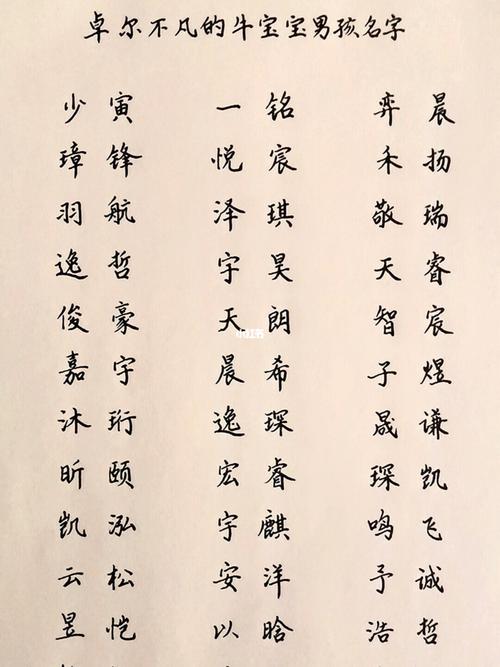 卓尔不凡的牛宝宝男孩名字
少寅 一铭 弈晨
璋锋 悦宸 禾扬
羽航 泽琪 敬瑞
逸哲 宇昊 天睿
俊豪 天朗 智宸
小红书
嘉宇 晨希 子煜
沐珩 逸琛 晟谦
昕颐 宏睿 琛凯
凯泓 宇麒 鸣飞
云松 安洋 予诚
昱恺 以晗 浩哲